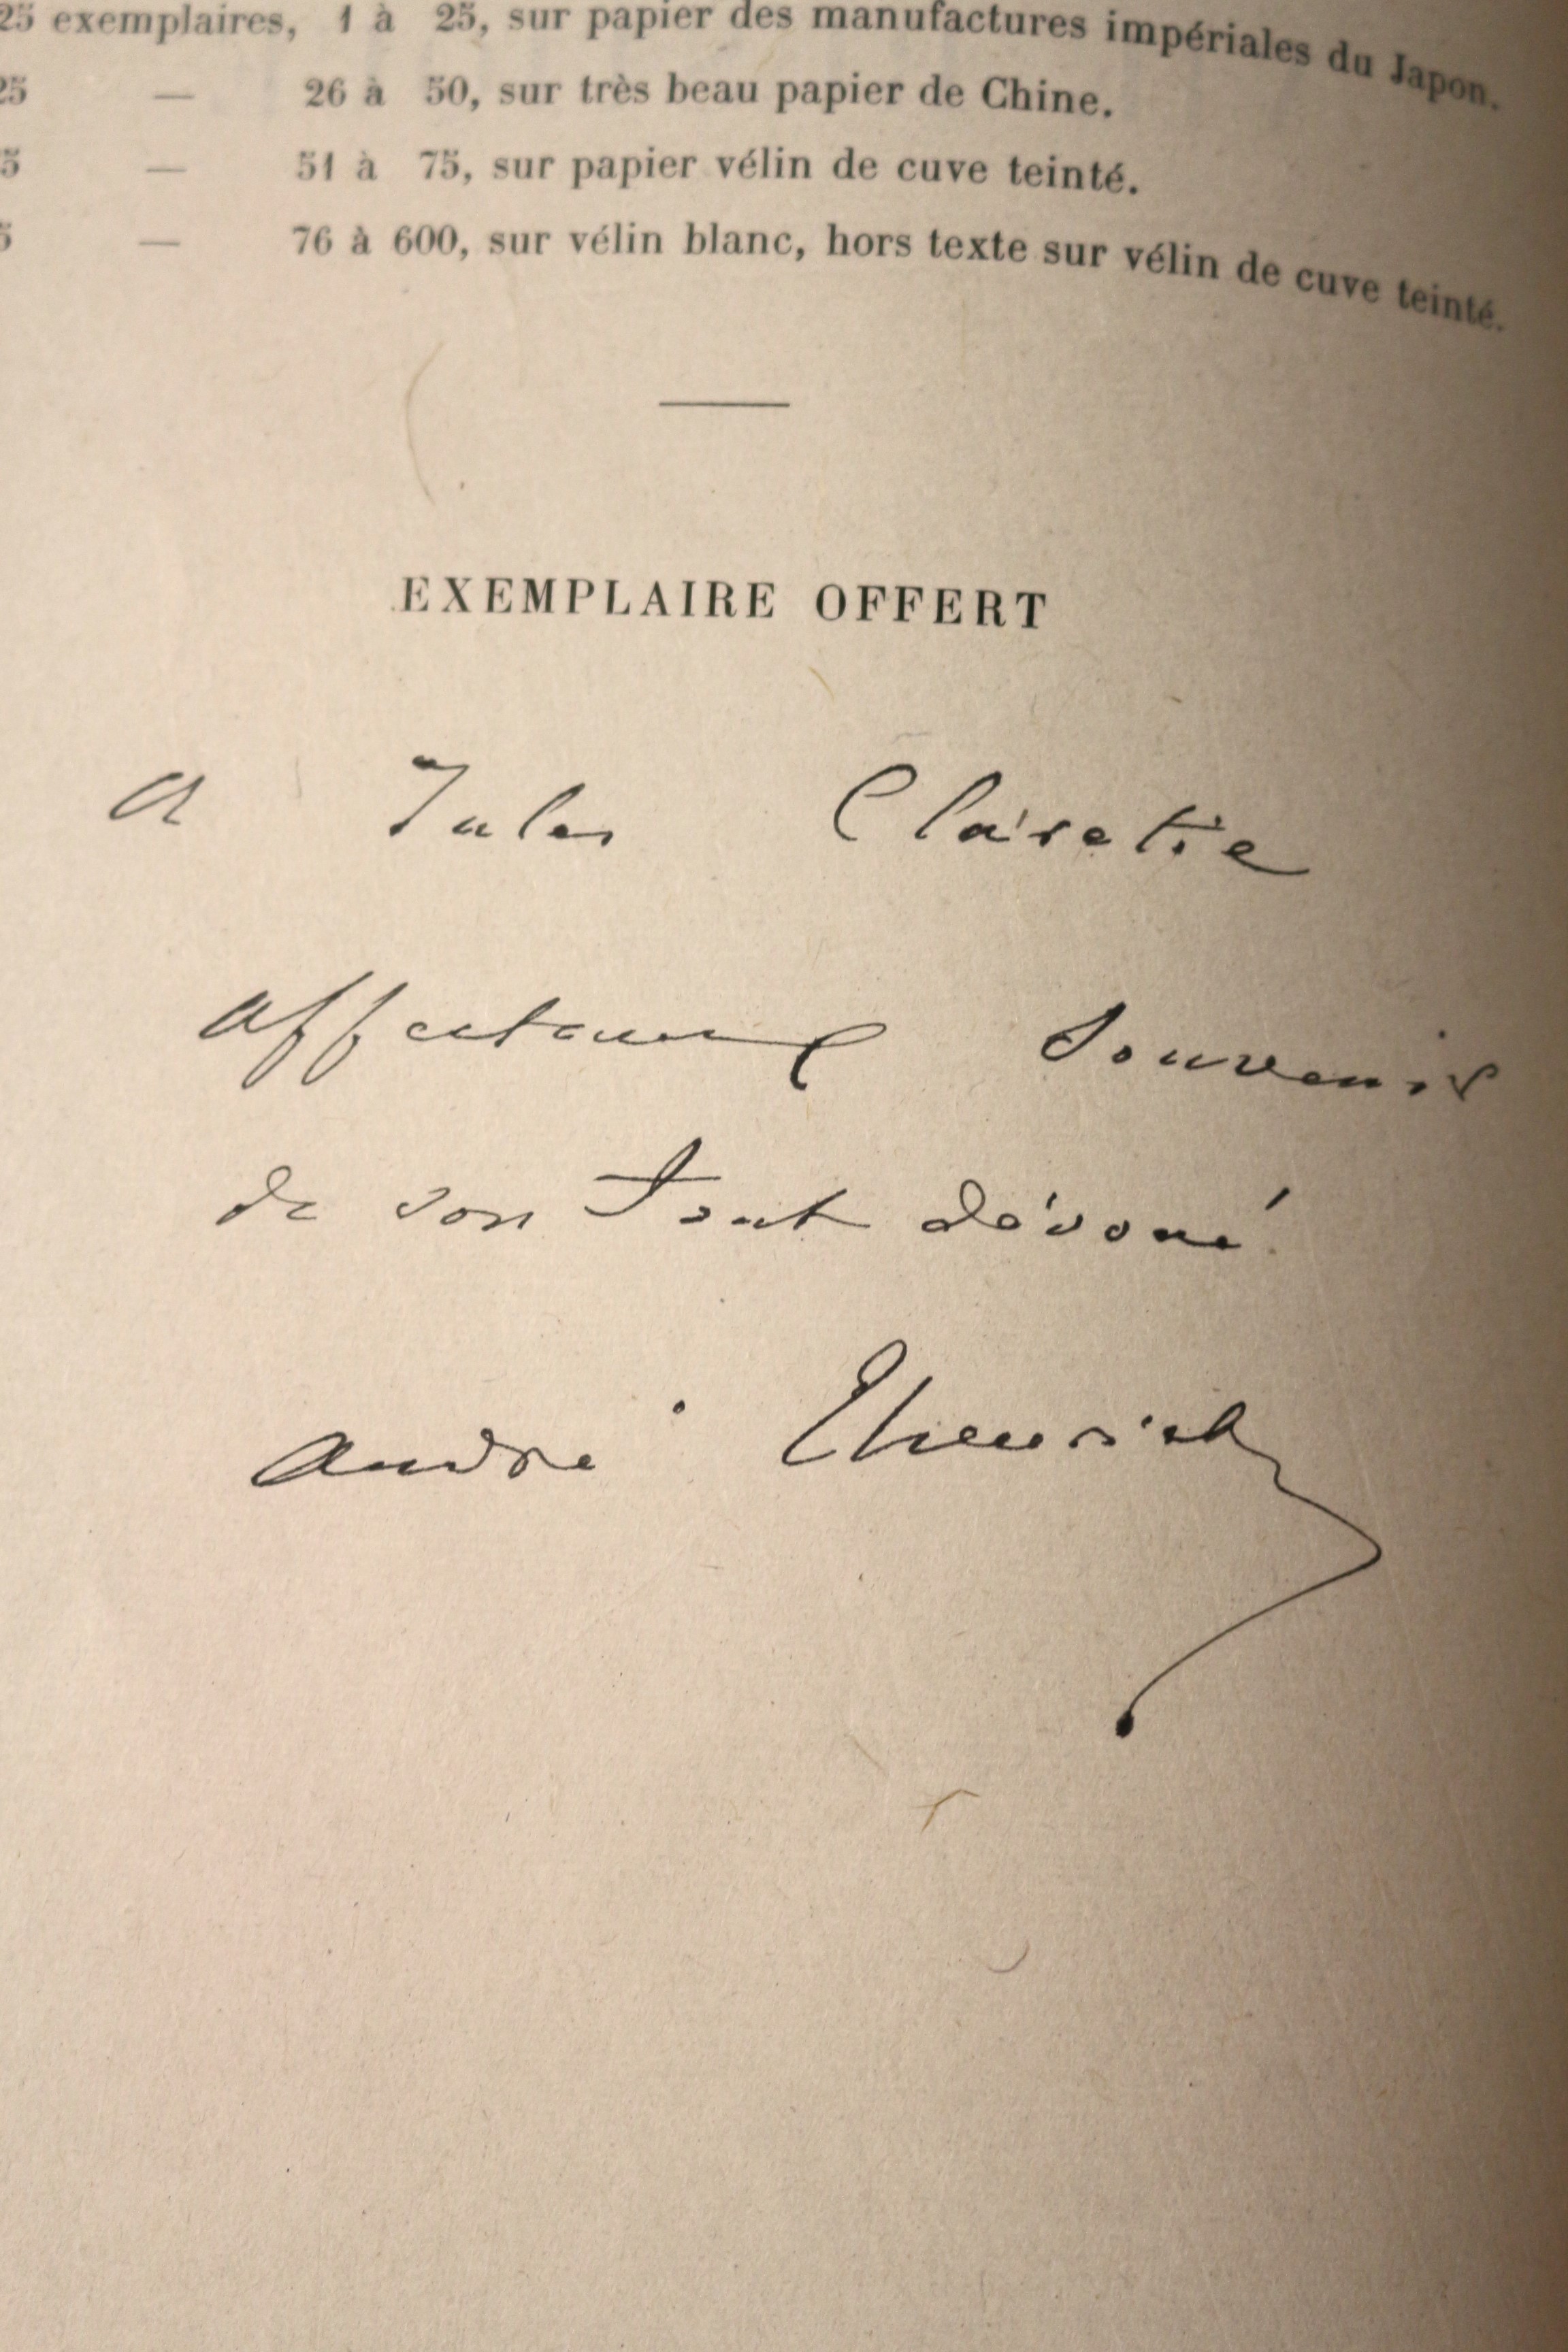 25 exemplaires, 1 à 25, sur papier des manufactures impériales du Japon.
25 — 26 à 50, sur très beau papier de Chine.
5 — 51 à 75, sur papier vélin de cuve teinté.
5 — 76 à 600, sur vélin blanc, hors texte sur vélin de cuve teinté.
EXEMPLAIRE OFFERT
A Jules Claretie
affectueux Souvenir
de son tout dévoué
André Theuriet